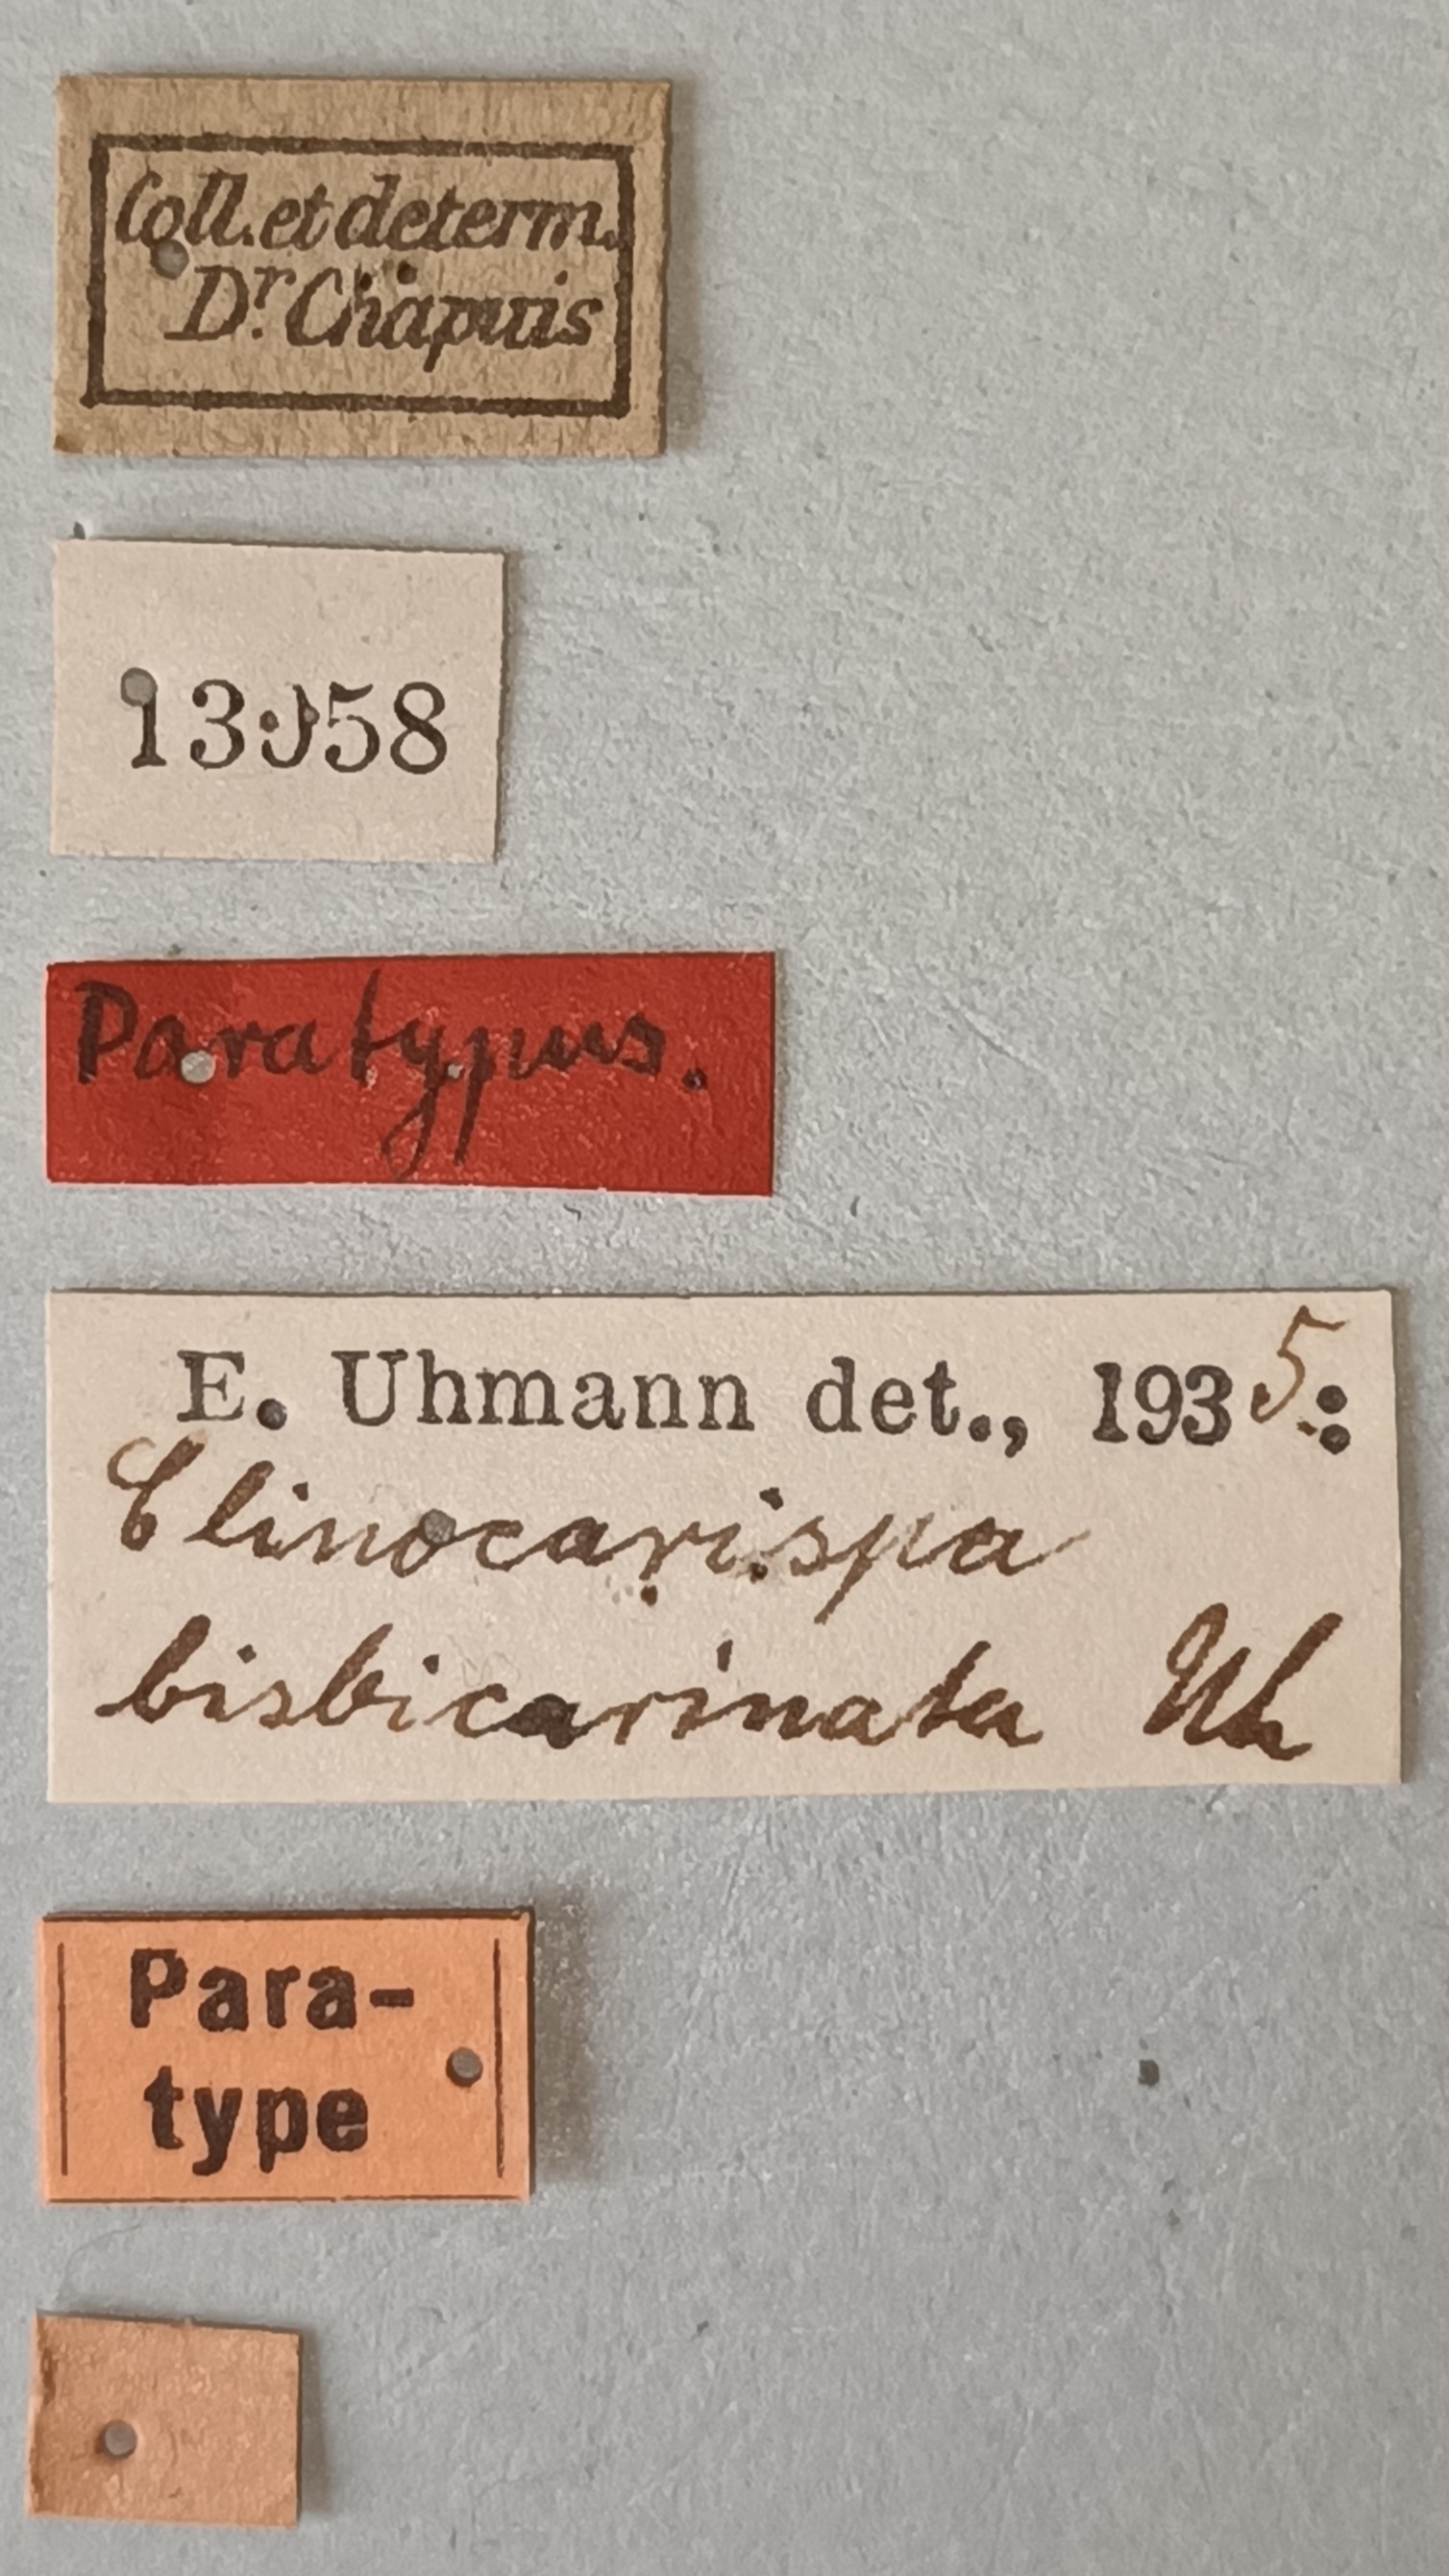 Coll. et determ.
Dr. Chapuis
13058
Paratypus.
E. Uhmann det., 1935.:
Clinocarispa
bisbicarinata Uh
Para-
type